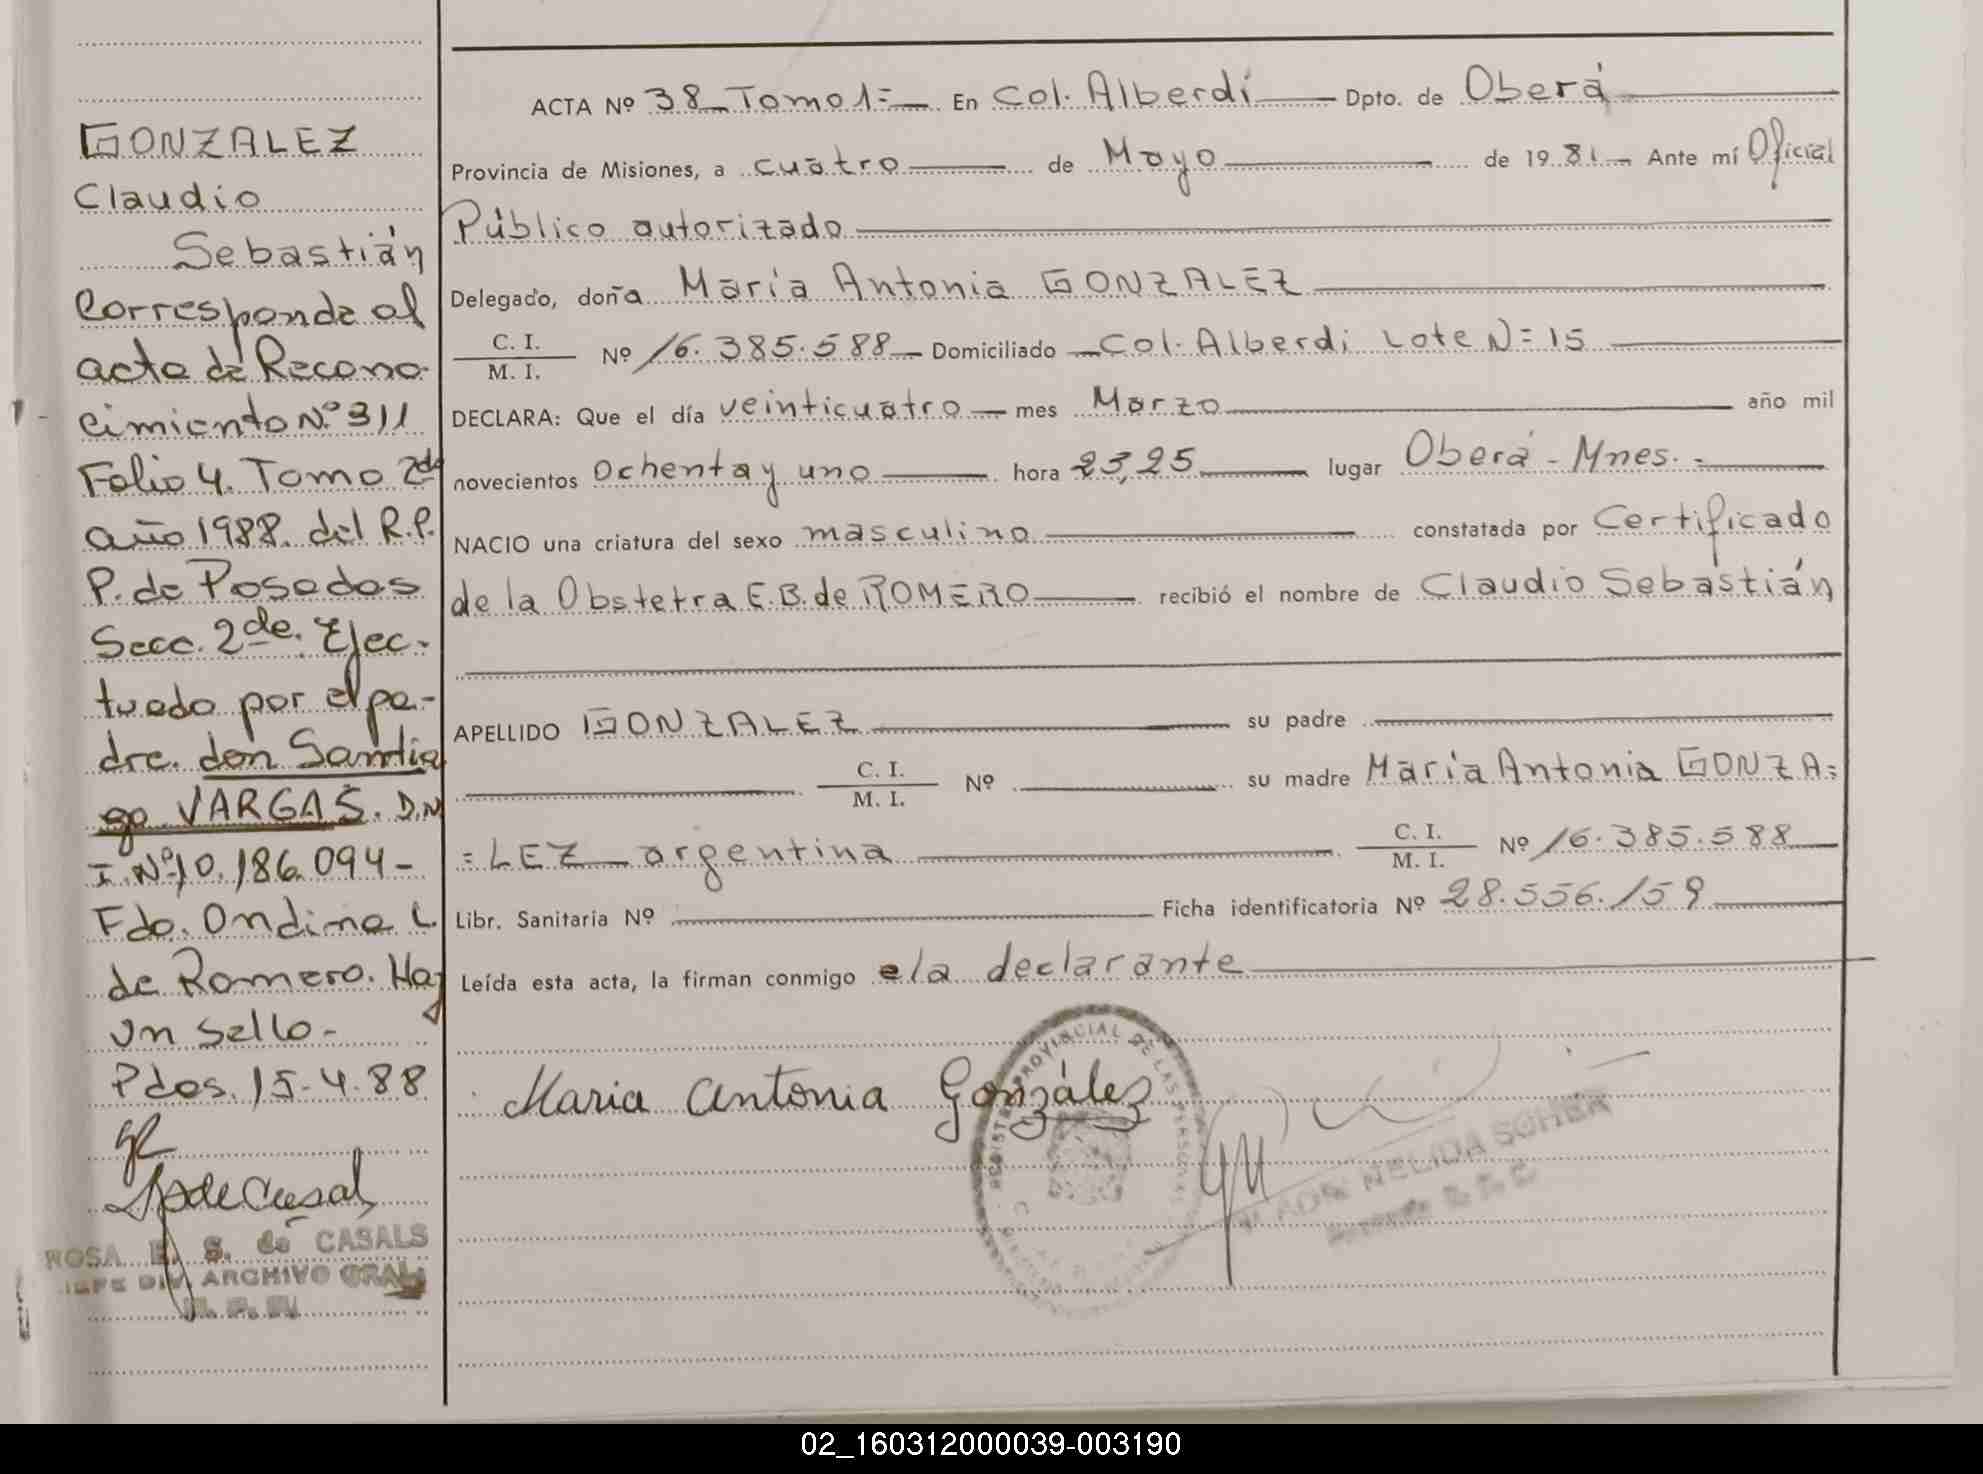 GONZALEZ
Claudio
Sebastián
Corresponde al
acta de Recono-
cimiento Nº 311
Folio 4. Tomo 2do
año 1988. del R.P.
P. de Posadas
Secc. 2da. Efec-
tuado por el pa-
dre. don Santia
go VARGAS. D.N.
I. Nº 10.186.094-
Fdo. Ondina L.
de Romero. Hay
un sello-
Pdas. 15-4-88
ROSA E. S. de CASALS
JEFE DIV. ARCHIVO GRAL.
ACTA Nº 38 Tomo 1= En Col. Alberdi Dpto. de Oberá
Provincia de Misiones, a cuatro de Mayo de 1981 Ante mí Oficial
Público autorizado
Delegado, doña María Antonia GONZALEZ
C. I.
M. I. Nº 16.385.588 Domiciliado Col. Alberdi Lote N= 15
DECLARA: Que el día veinticuatro mes Marzo año mil
novecientos ochenta y uno hora 23,25 lugar Oberá - Mnes. -
NACIO una criatura del sexo masculino constatada por Certificado
de la Obstetra E.B. de ROMERO recibió el nombre de Claudio Sebastián
APELLIDO GONZALEZ su padre
C. I.
M. I. Nº su madre María Antonia GONZA=
=LEZ argentina C. I.
M. I. Nº 16.385.588
Libr. Sanitaria Nº Ficha identificatoria Nº 28.556.159
Leída esta acta, la firman conmigo e la declarante
Maria Antonia González
REGISTRO PROVINCIAL DE LAS PERSONAS
NELIDA
02_160312000039-003190